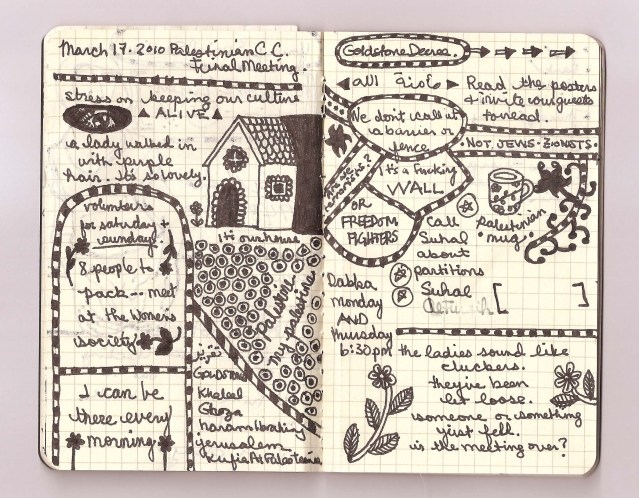 March 17. 2010 Palestinian C.C.
Final Meeting.
stress on keeping our culture
ALIVE
a lady walked in
with purple
hair. It's so lovely.
volunteers
for saturday +
sunday.
8 people to
pack -- meet
at the womens
society
I can be
there every
morning
it's our house
palestine
my palestine
GOLDSTONE
Khaled
Ghaza
haram
jerusalem
Kufia At Palestine
Goldstone Decree.
Read the posters
+ invite your guests
to read.
We don't call it
a barrier or
fence
It's a Fucking
WALL
• NOT JEWS - ZIONISTS •
OR
FREEDOM
FIGHTERS
palestinian
mug.
Call
Suhal
about
partitions
Suhal
Dabka
monday
AND
thursday
6:30pm
the ladies sound like
cluckers.
they've been
let loose.
someone or something
just fell.
is the meeting over?